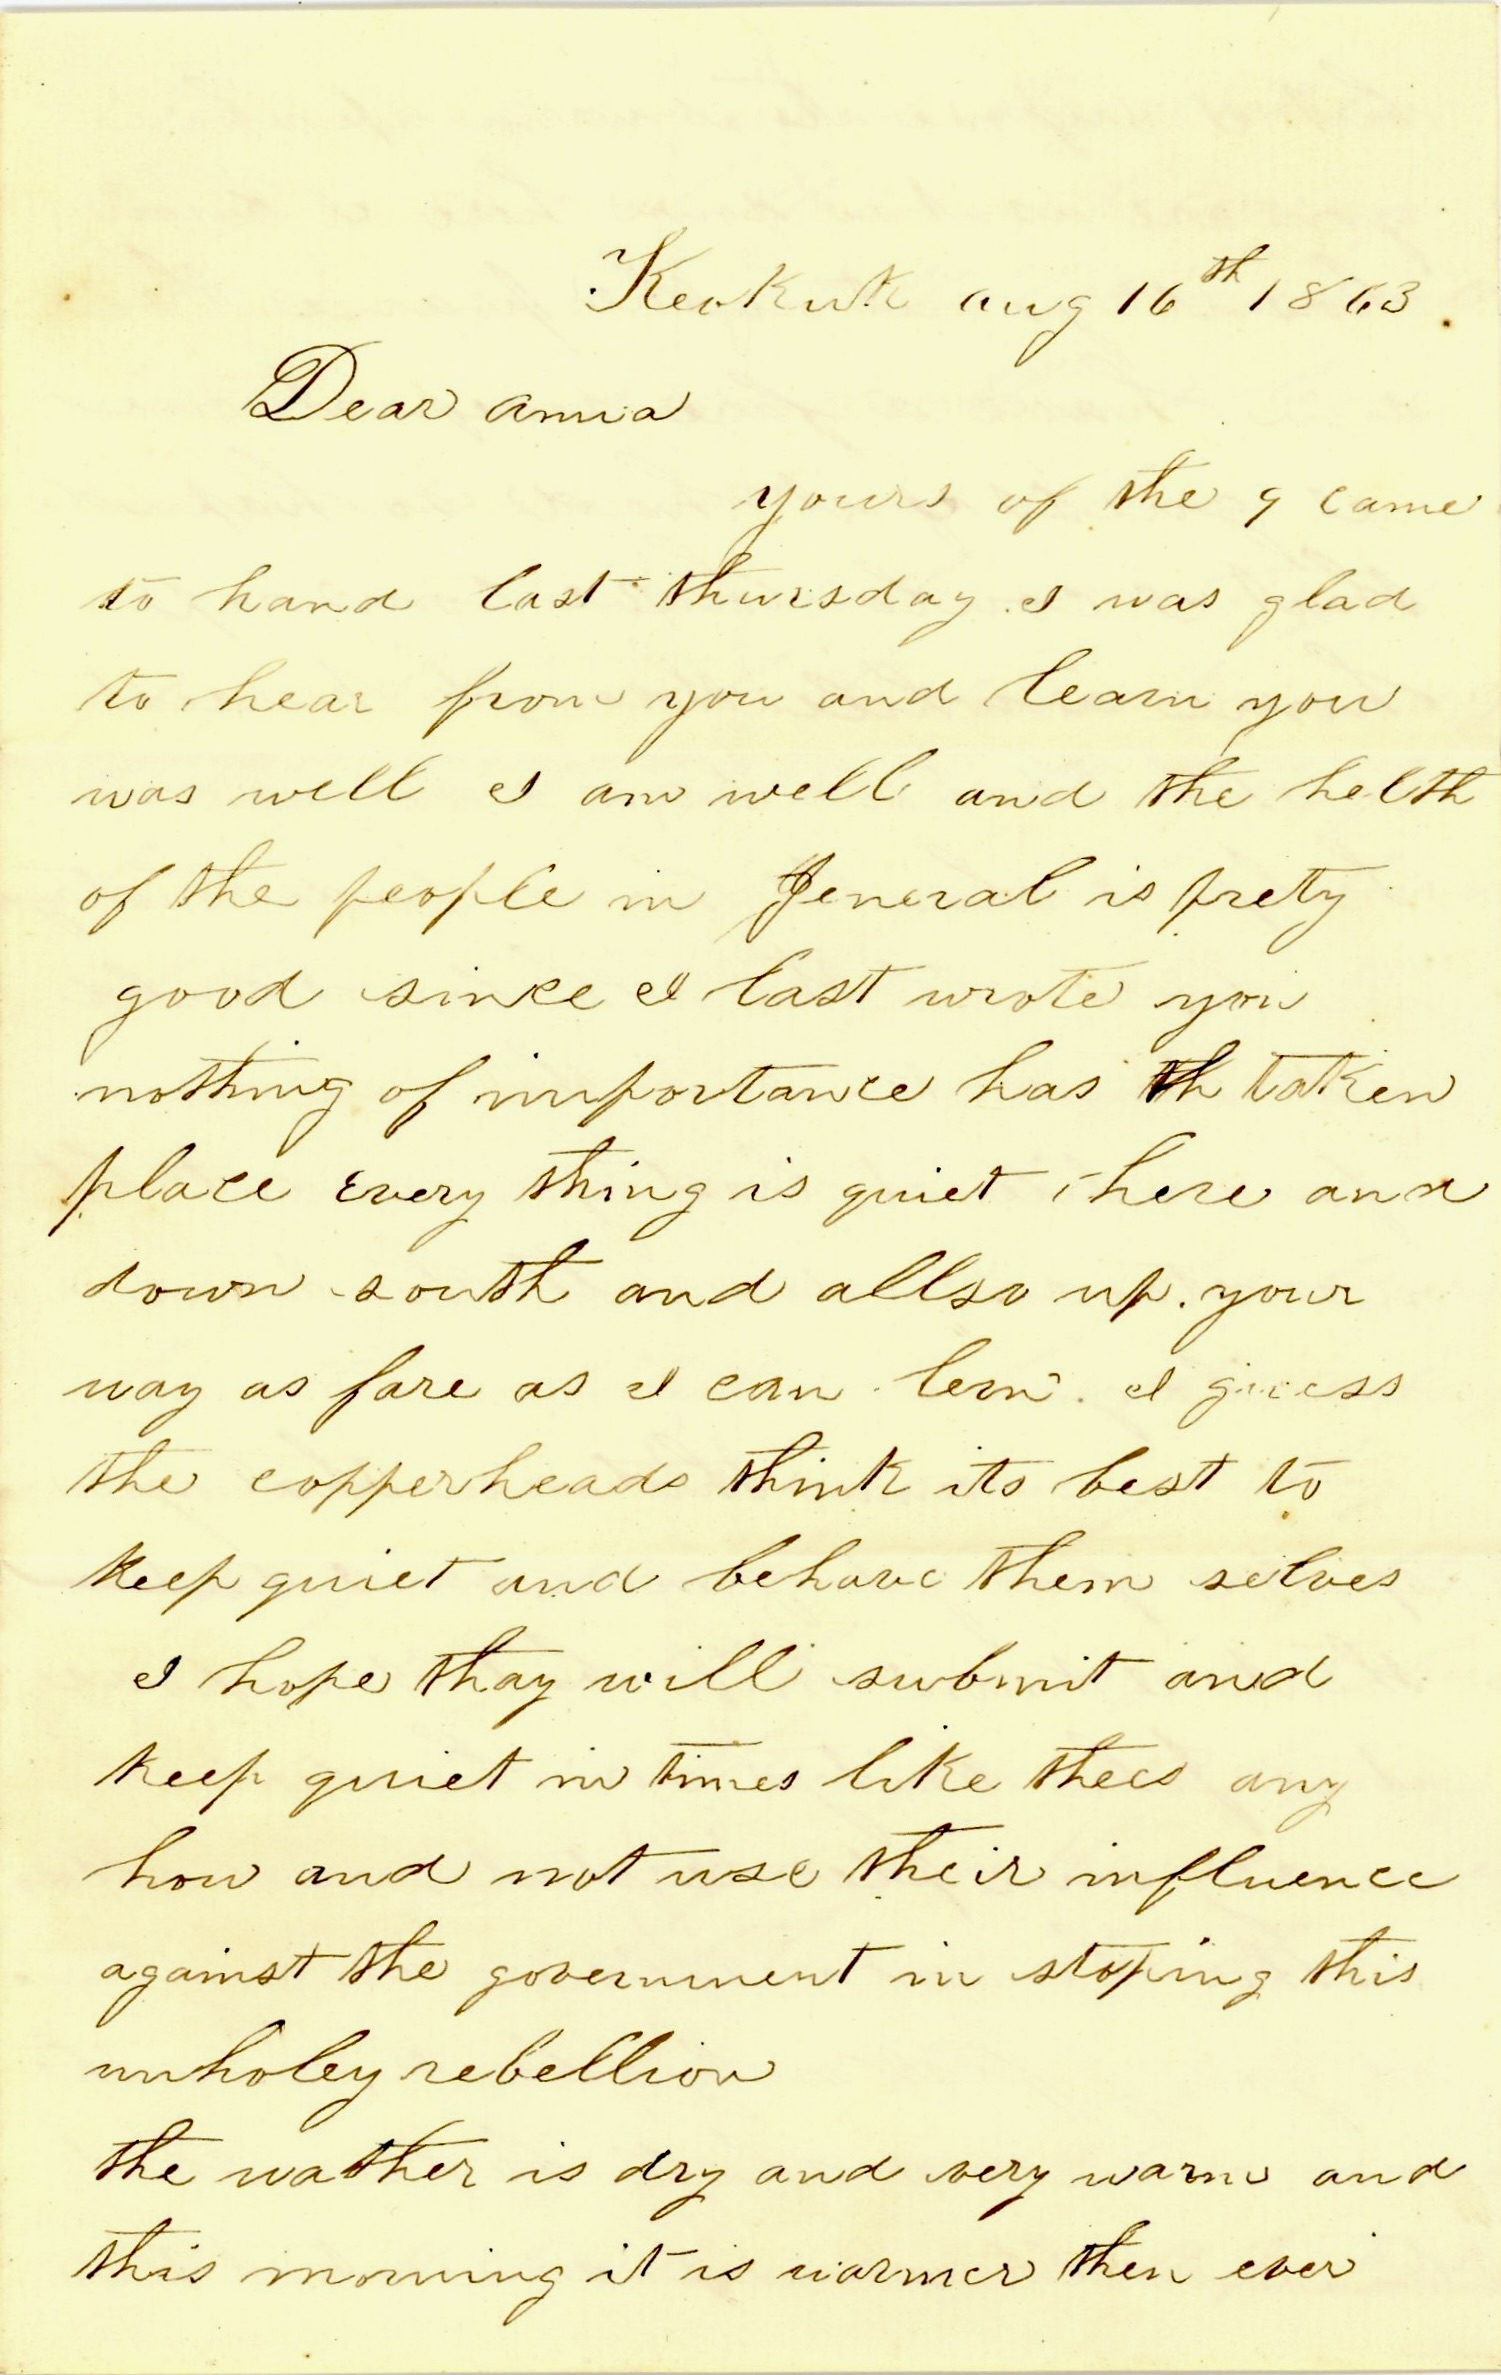 Keokuk aug 16th 1863
Dear anna
yours of the 9 came
to hand last thursday I was glad
to hear from you and learn you
was well I am well and the helth
of the people in Jeneral is prety
good since I last wrote you
nothing of importance has th taken
place every thing is quiet here and
down south and allso up your
way as fare as I can lern. I guess
the copperheads think its best to
keep quiet and behave them selves
I hope thay will submit and
keep quiet in times like thees any
how and not use their influence
against the government in stoping this
unholey rebellion
the wather is dry and very warm and
this morning it is warmer then ever